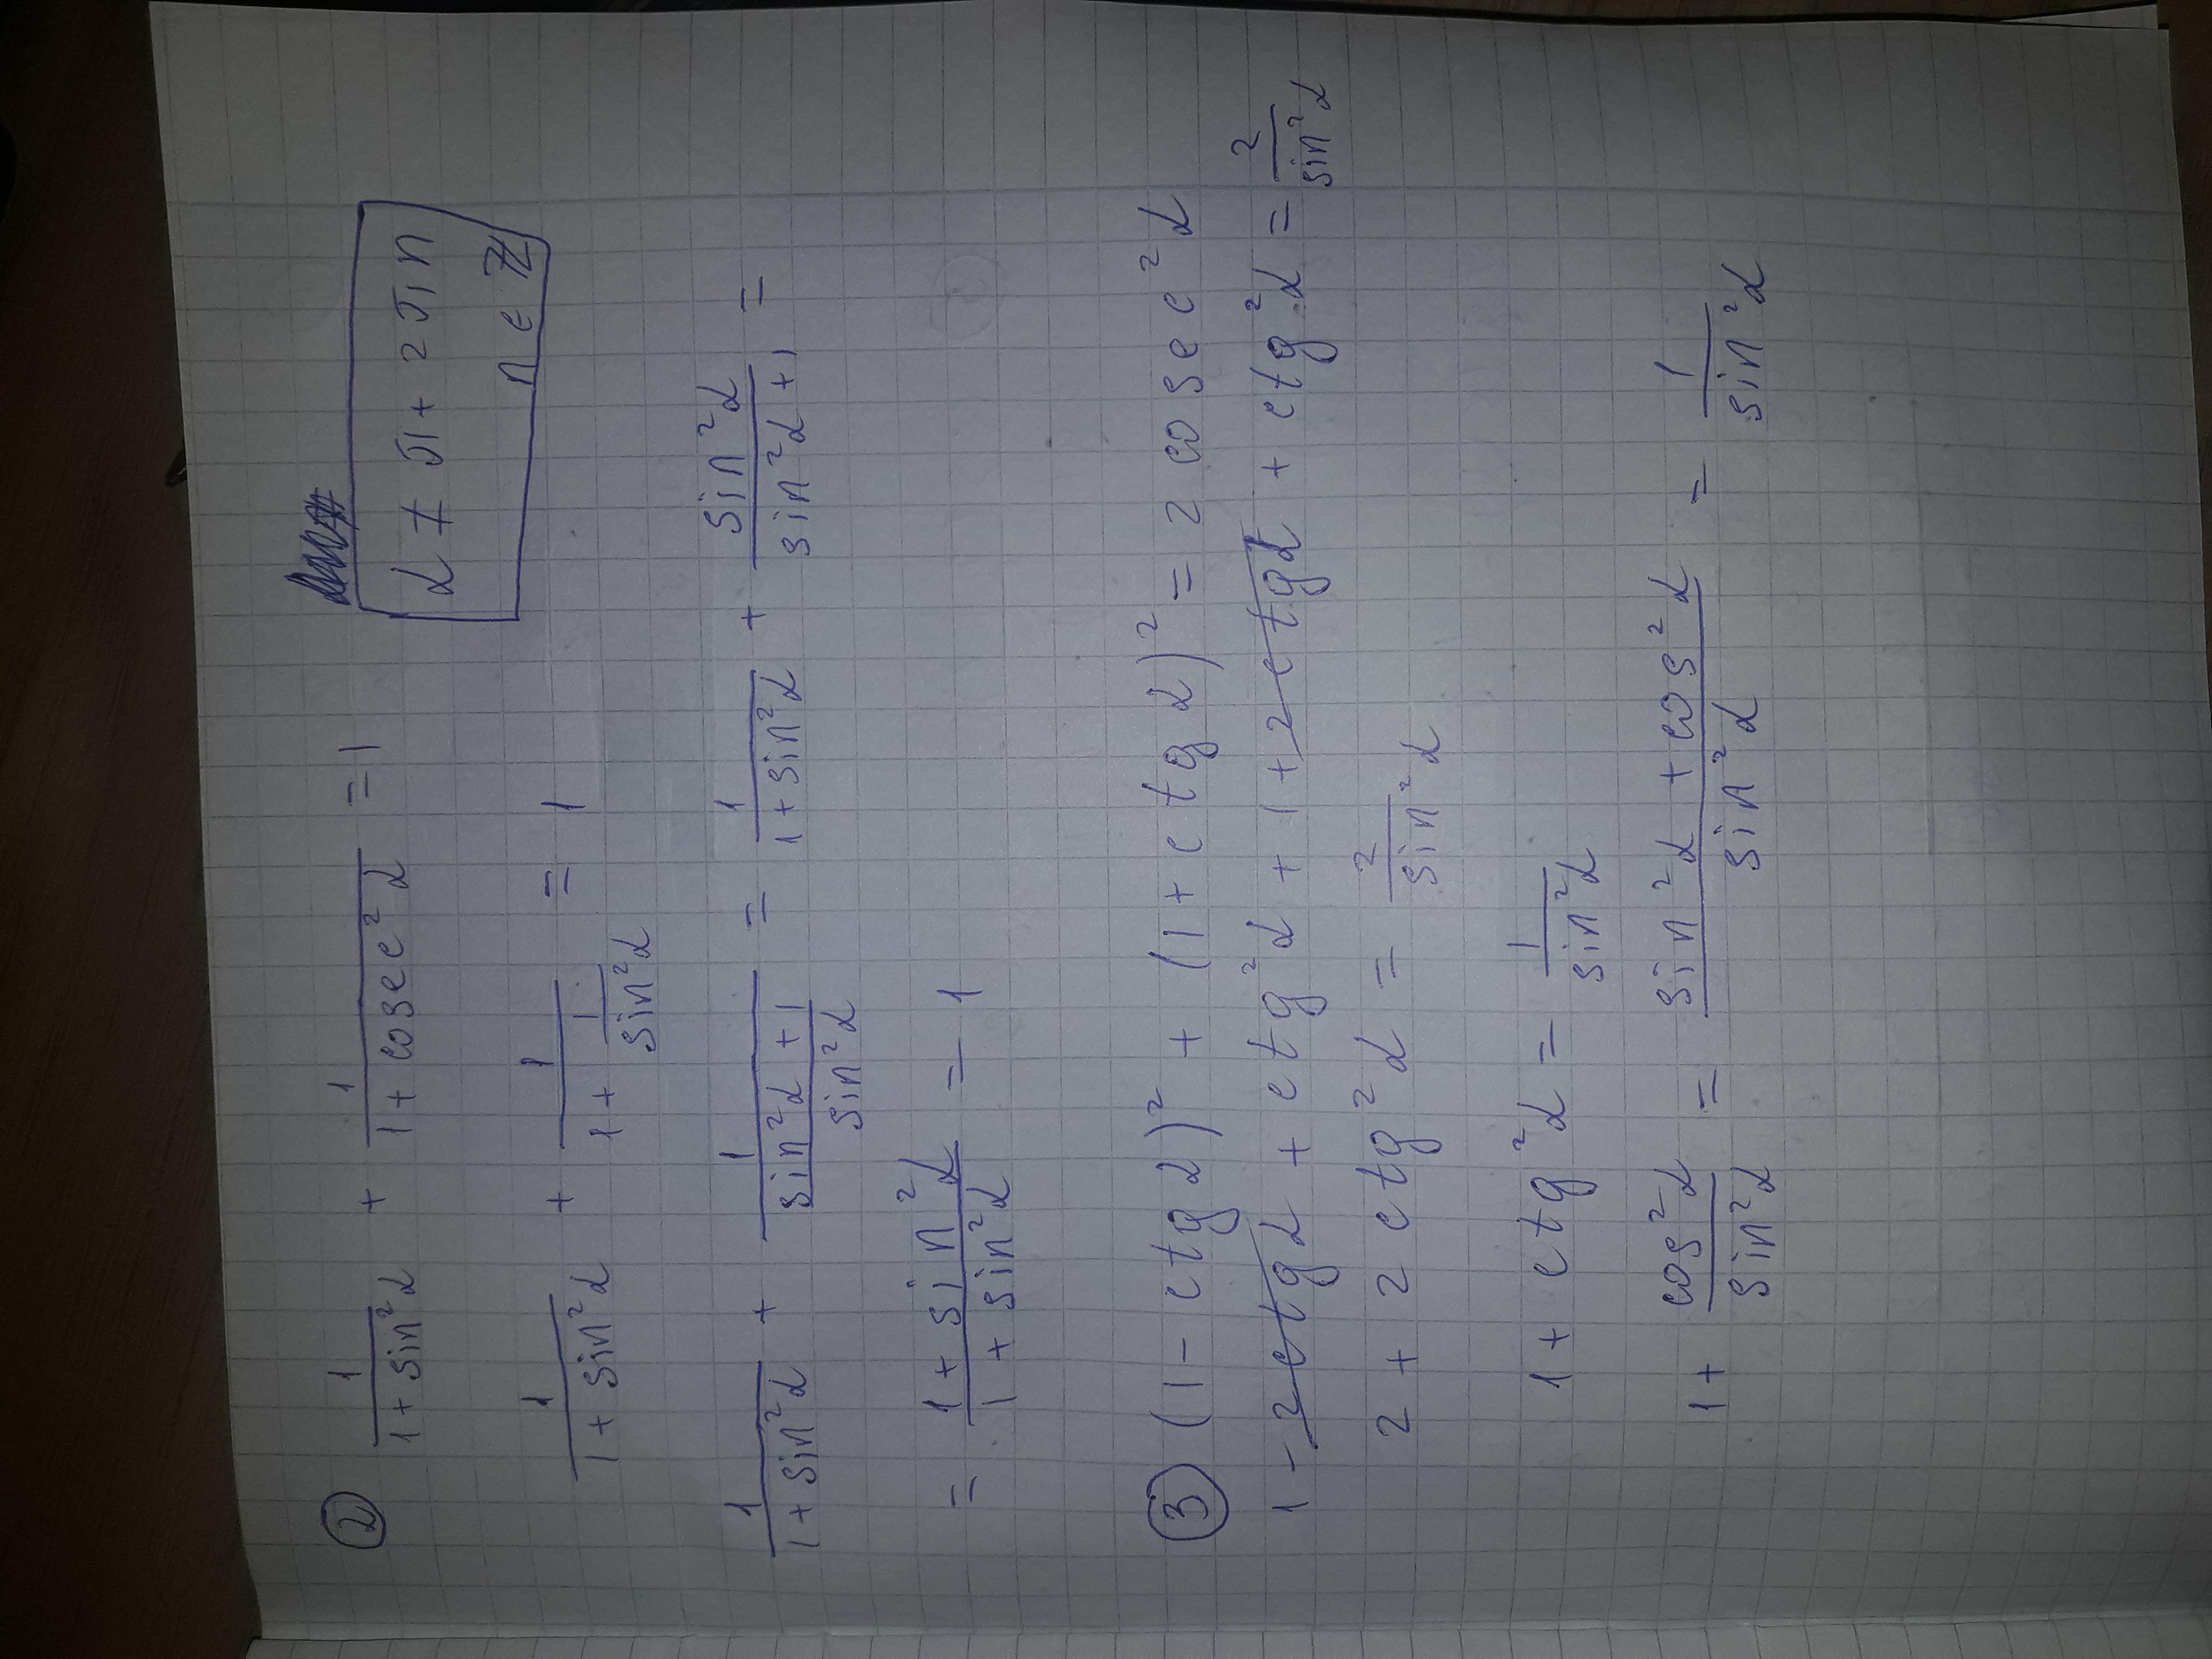 ② 1/(1 + sin²α) + 1/(1 + cosec²α) = 1
α ≠ π + 2πn
n ∈ ℤ
1/(1 + sin²α) + 1/(1 + 1/sin²α) = 1
1/(1 + sin²α) + 1/((sin²α + 1)/sin²α) = 1/(1 + sin²α) + sin²α/(sin²α + 1) =
= (1 + sin²α)/(1 + sin²α) = 1
③ (1 - ctg α)² + (1 + ctg α)² = 2 cosec²α
1 - 2ctgα + ctg²α + 1 + 2ctgα + ctg²α = 2/sin²α
2 + 2ctg²α = 2/sin²α
1 + ctg²α = 1/sin²α
1 + cos²α/sin²α = (sin²α + cos²α)/sin²α = 1/sin²α